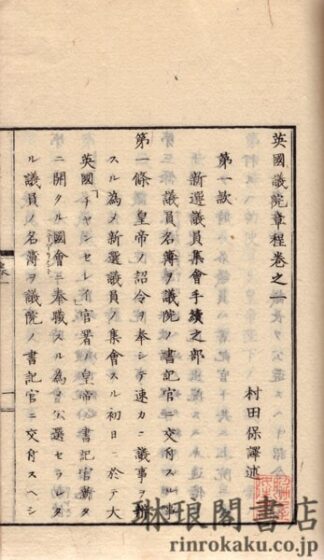 英國議院章程卷之一
村田保譯述
第一款
新選議員集會手續之部
議員名簿ヲ議院ノ書記官ニ交付スル事
第一條皇帝ノ詔令ヲ奉シテ速カニ議事ヲ辨
スル為メ新選議員ノ集會スル初日ニ於テ大
英國チヤンセレイ官署ノ皇帝ノ書記官新タ
ニ開クル國會ニ奉職スル為メ公選セラレタ
ル議員ノ名簿ヲ議院ノ書記官ニ交付スヘシ
琳琅閣書店
rinrokaku.co.jp